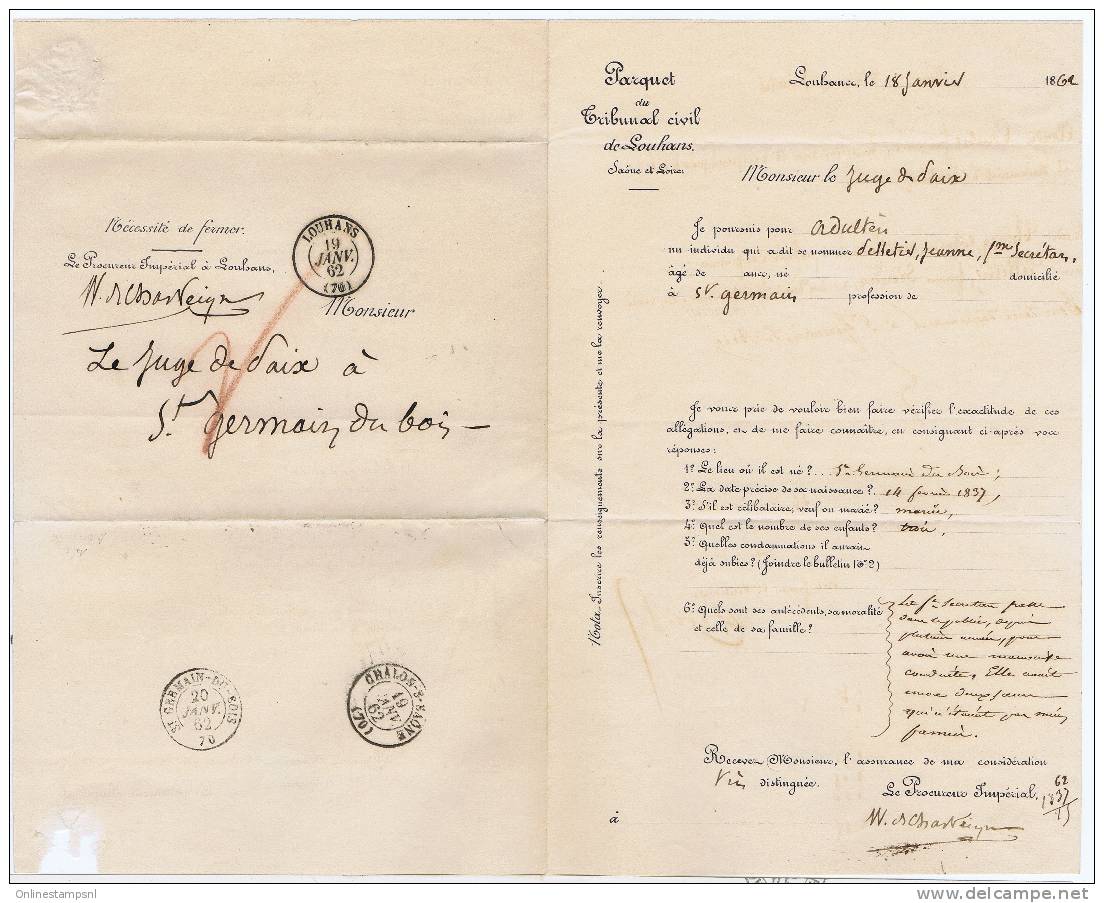 Nécessité de fermer.
Le Procureur Impérial à Louhans,
LOUHANS
19
JANV.
62
(70)
Monsieur
Le Juge de Paix à
St. germain du bois
ST GERMAIN-DU-BOIS
20
JANV.
62
70
CHALON-S-SAONE
19
JANV.
62
(70)
Parquet
du
Tribunal civil
de Louhans.
Saône et Loire.
Louhans, le 18 Janvier 1862
Monsieur le Juge de Paix
Je poursuis pour adultère
un individu qui a dit se nommer Pelletier, Jeanne, fme Secrétan,
âgé de ans, né domicilié
à St. germain profession de
Je vous prie de vouloir bien faire vérifier l'exactitude de ces
allégations, et de me faire connaître, en consignant ci-après vos
réponses:
1º Le lieu où il est né? St Germain du Bois;
2º La date précise de sa naissance? 14 fevrier 1837,
3º S'il est célibataire, veuf ou marié? mariée,
4º Quel est le nombre de ses enfants? trois,
5º Quelles condamnations il aurait
déjà subies? (Joindre le bulletin Nº 2)
6º Quels sont ses antécédents, sa moralité
et celle de sa famille?
La fe Secretan passe
dans le public, depuis
plusieurs années, pour
avoir une mauvaise
conduite. Elle avait
encore deux sœurs
qui n'étaient pas mieux
famées.
Recevez, Monsieur, l'assurance de ma considération
très distinguée.
Le Procureur Impérial,
62
1837
à
Nota. Inscrire les renseignements sur la présente et me la renvoyer.
Onlinestampsnl
delcampe.net